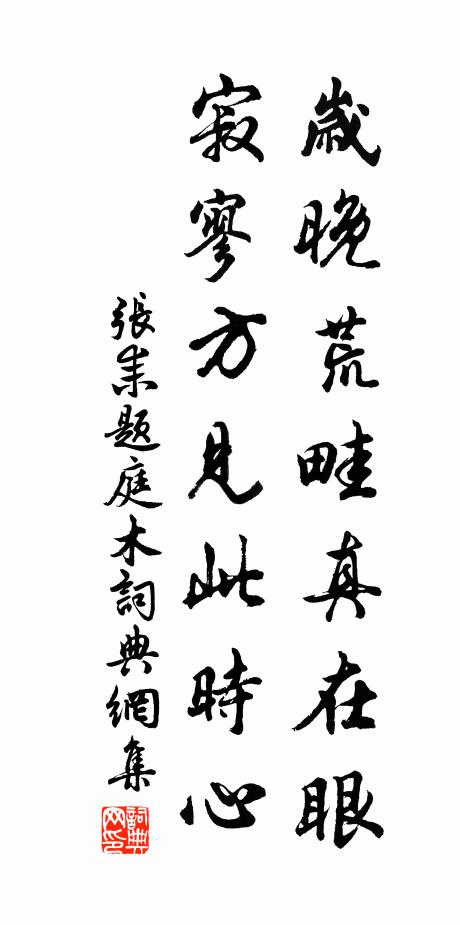 歲晚荒畦真在眼
寂寥方見此時心
張耒題庭木詞典網集
詞典网印